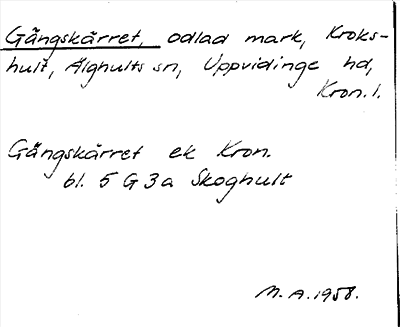 Gångskärret, odlad mark, Kroks-
hult, Älghults sn, Uppvidinge hd,
Kron. l.
Gångskärret ek Kron.
bl. 5 G 3a Skoghult
M.A. 1958.